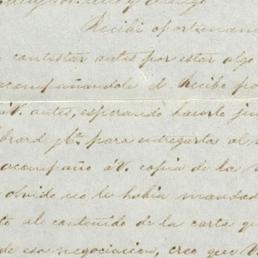 y amigo
Recibí oportunamen
contestar antes por estar algo
acompañandole el Recibo po
á V. antes, esperando hacerlo jun
para entregarla al
acompaño á V. copia de la
olvido no le habia mandad
to al contenido de la carta q
de esa negociacion, creo que V